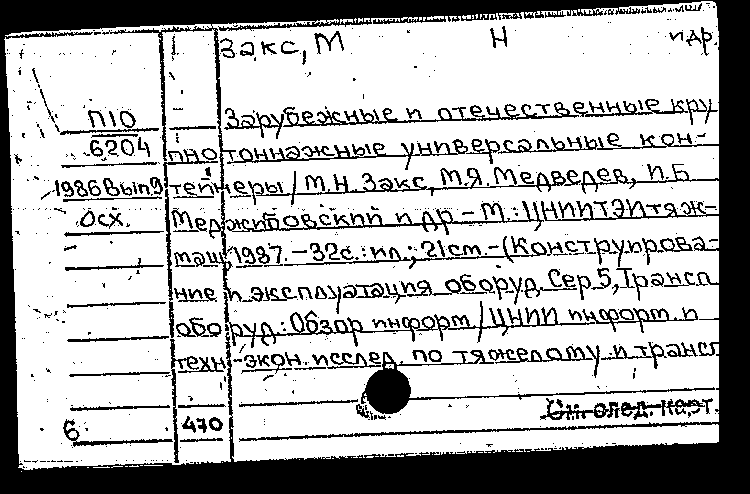 Закс, М Н и др.
П10
6204
1986 Вып 9
Осх.
Зарубежные и отечественные кру
пнотоннажные универсальные кон-
тейнеры / М.Н. Закс, М.Я. Медведев, И.Б
Меджибовский и др – М.: ЦНИИТЭИтяж-
маш, 1987. – 32с.: ил.; 21см. – (Конструирова-
ние и эксплуатация оборуд. Сер 5, Трансп
оборуд.: Обзор информ. / ЦНИИ информ. и
техн-экон. исслед. по тяжелому и трансп
См. след. карт.
6 470